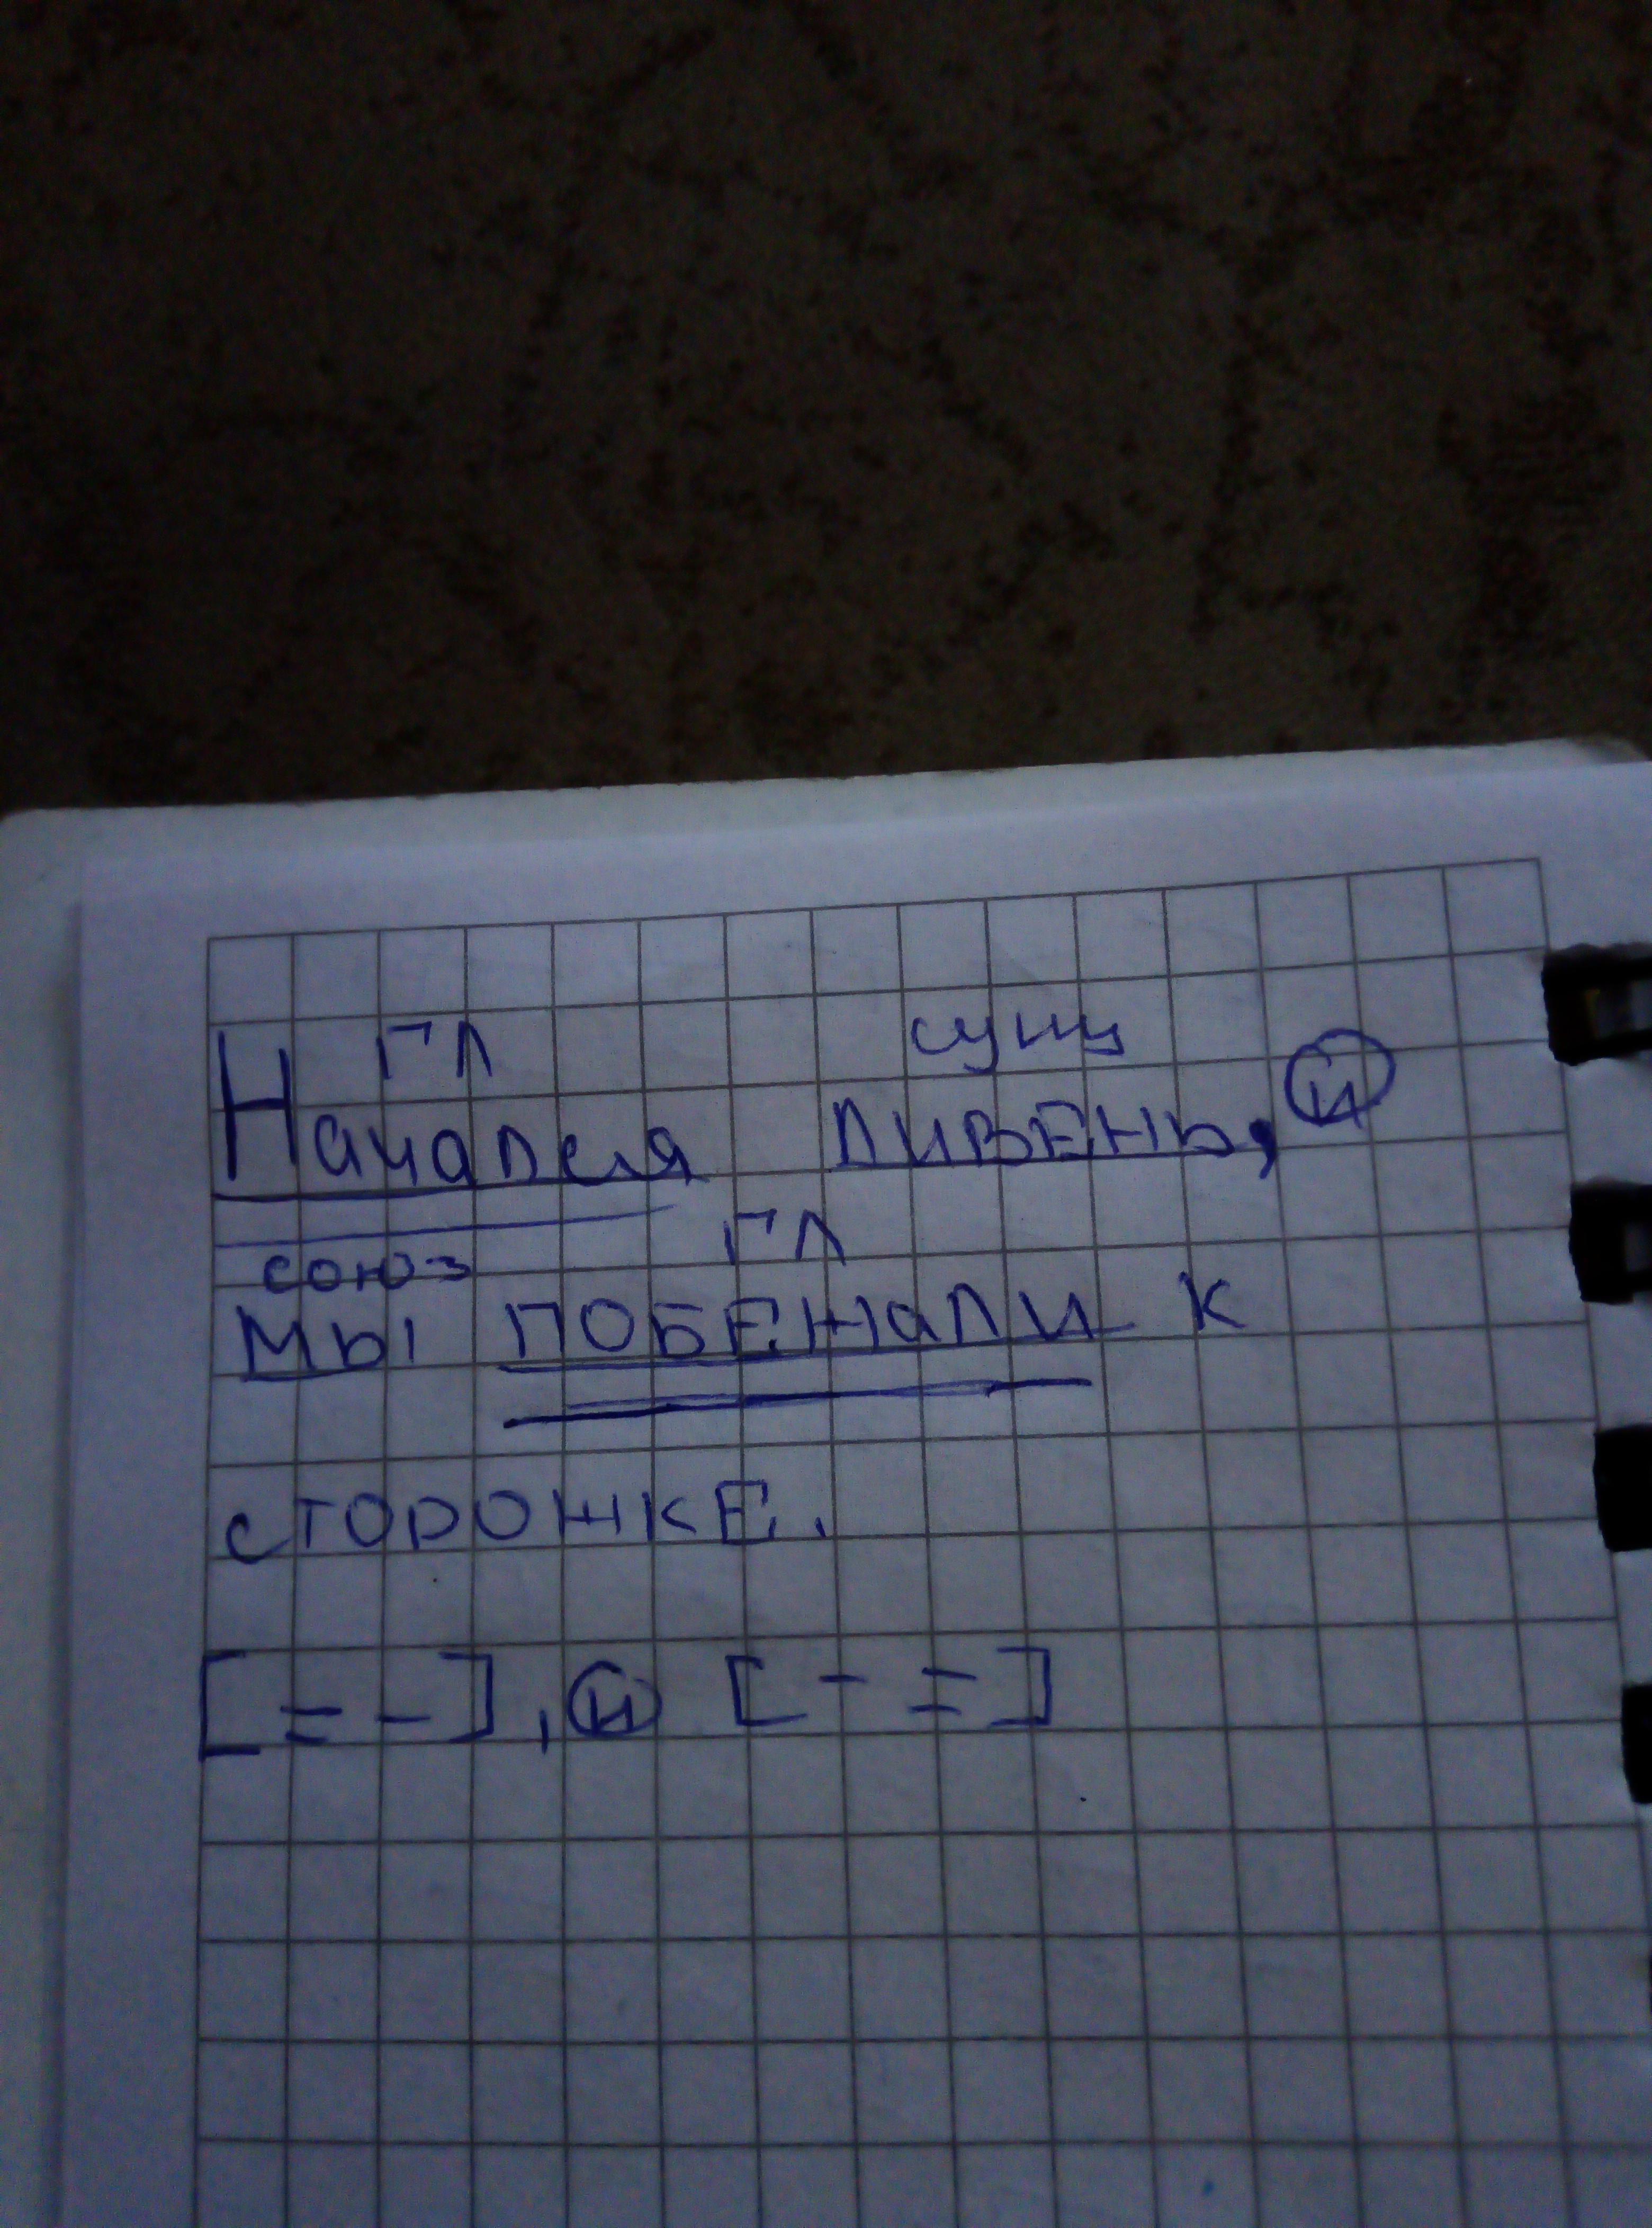 гл сущ
Начался ЛИВЕНЬ, и
союз гл
МЫ ПОБЕЖАЛИ К
СТОРОЖКЕ.
[= -], и [- =]